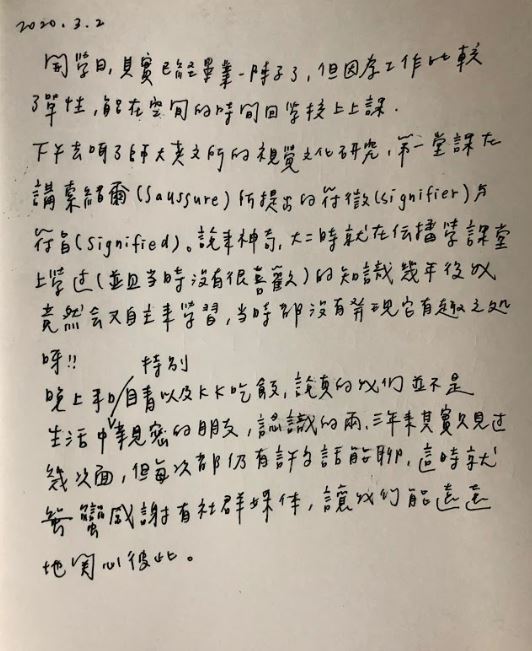 2020.3.2
開學日,其實已經畢業一陣子了,但因為工作比較
了彈性,能在空閒的時間回學校上上課.
下午去聽了師大英文所的視覺文化研究,第一堂課在
講索緒爾(Saussure)所提出的符徵(signifier)与
符旨(Signified)。說來神奇,大二時就在伝播學課堂
上學过(並且当時沒有很喜歡)的知識幾年後我
竟然会又自主來學習,当時都沒有發現它有趣之処
呀!!
特別
晚上和自青以及KK吃飯,說真的我們並不是
生活中親密的朋友,認識的兩、三年來其實只見过
幾次面,但每次都仍有許多話能聊,這時就
蠻感謝有社群媒体,讓我们能遠遠
地関心彼此。